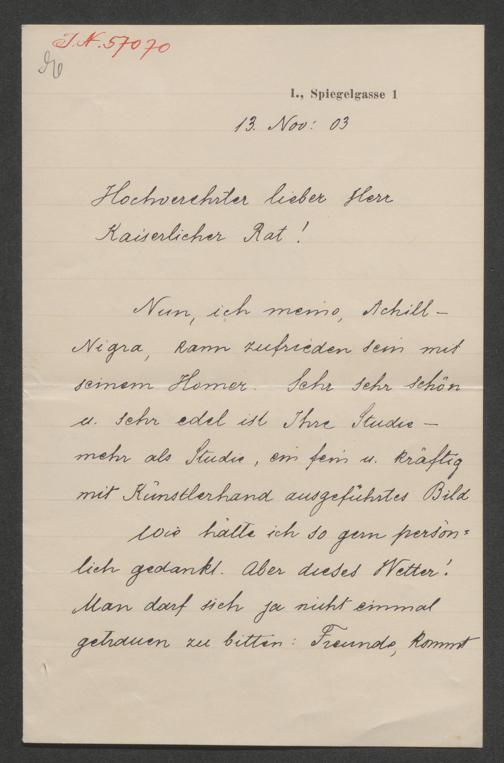 J.N. 57070
I., Spiegelgasse 1
13. Nov: 03
Hochverehrter lieber Herr
Kaiserlicher Rat!
Nun, ich meine, Achill-
Nigra, kann zufrieden sein mit
seinem Homer. Sehr sehr schön
u. sehr edel ist Ihre Studie –
mehr als Studie, ein fein u. kräftig
mit Künstlerhand ausgeführtes Bild
Wie hätte ich so gern persön=
lich gedankt. Aber dieses Wetter!
Man darf sich ja nicht einmal
getrauen zu bitten: Freunde, kommt